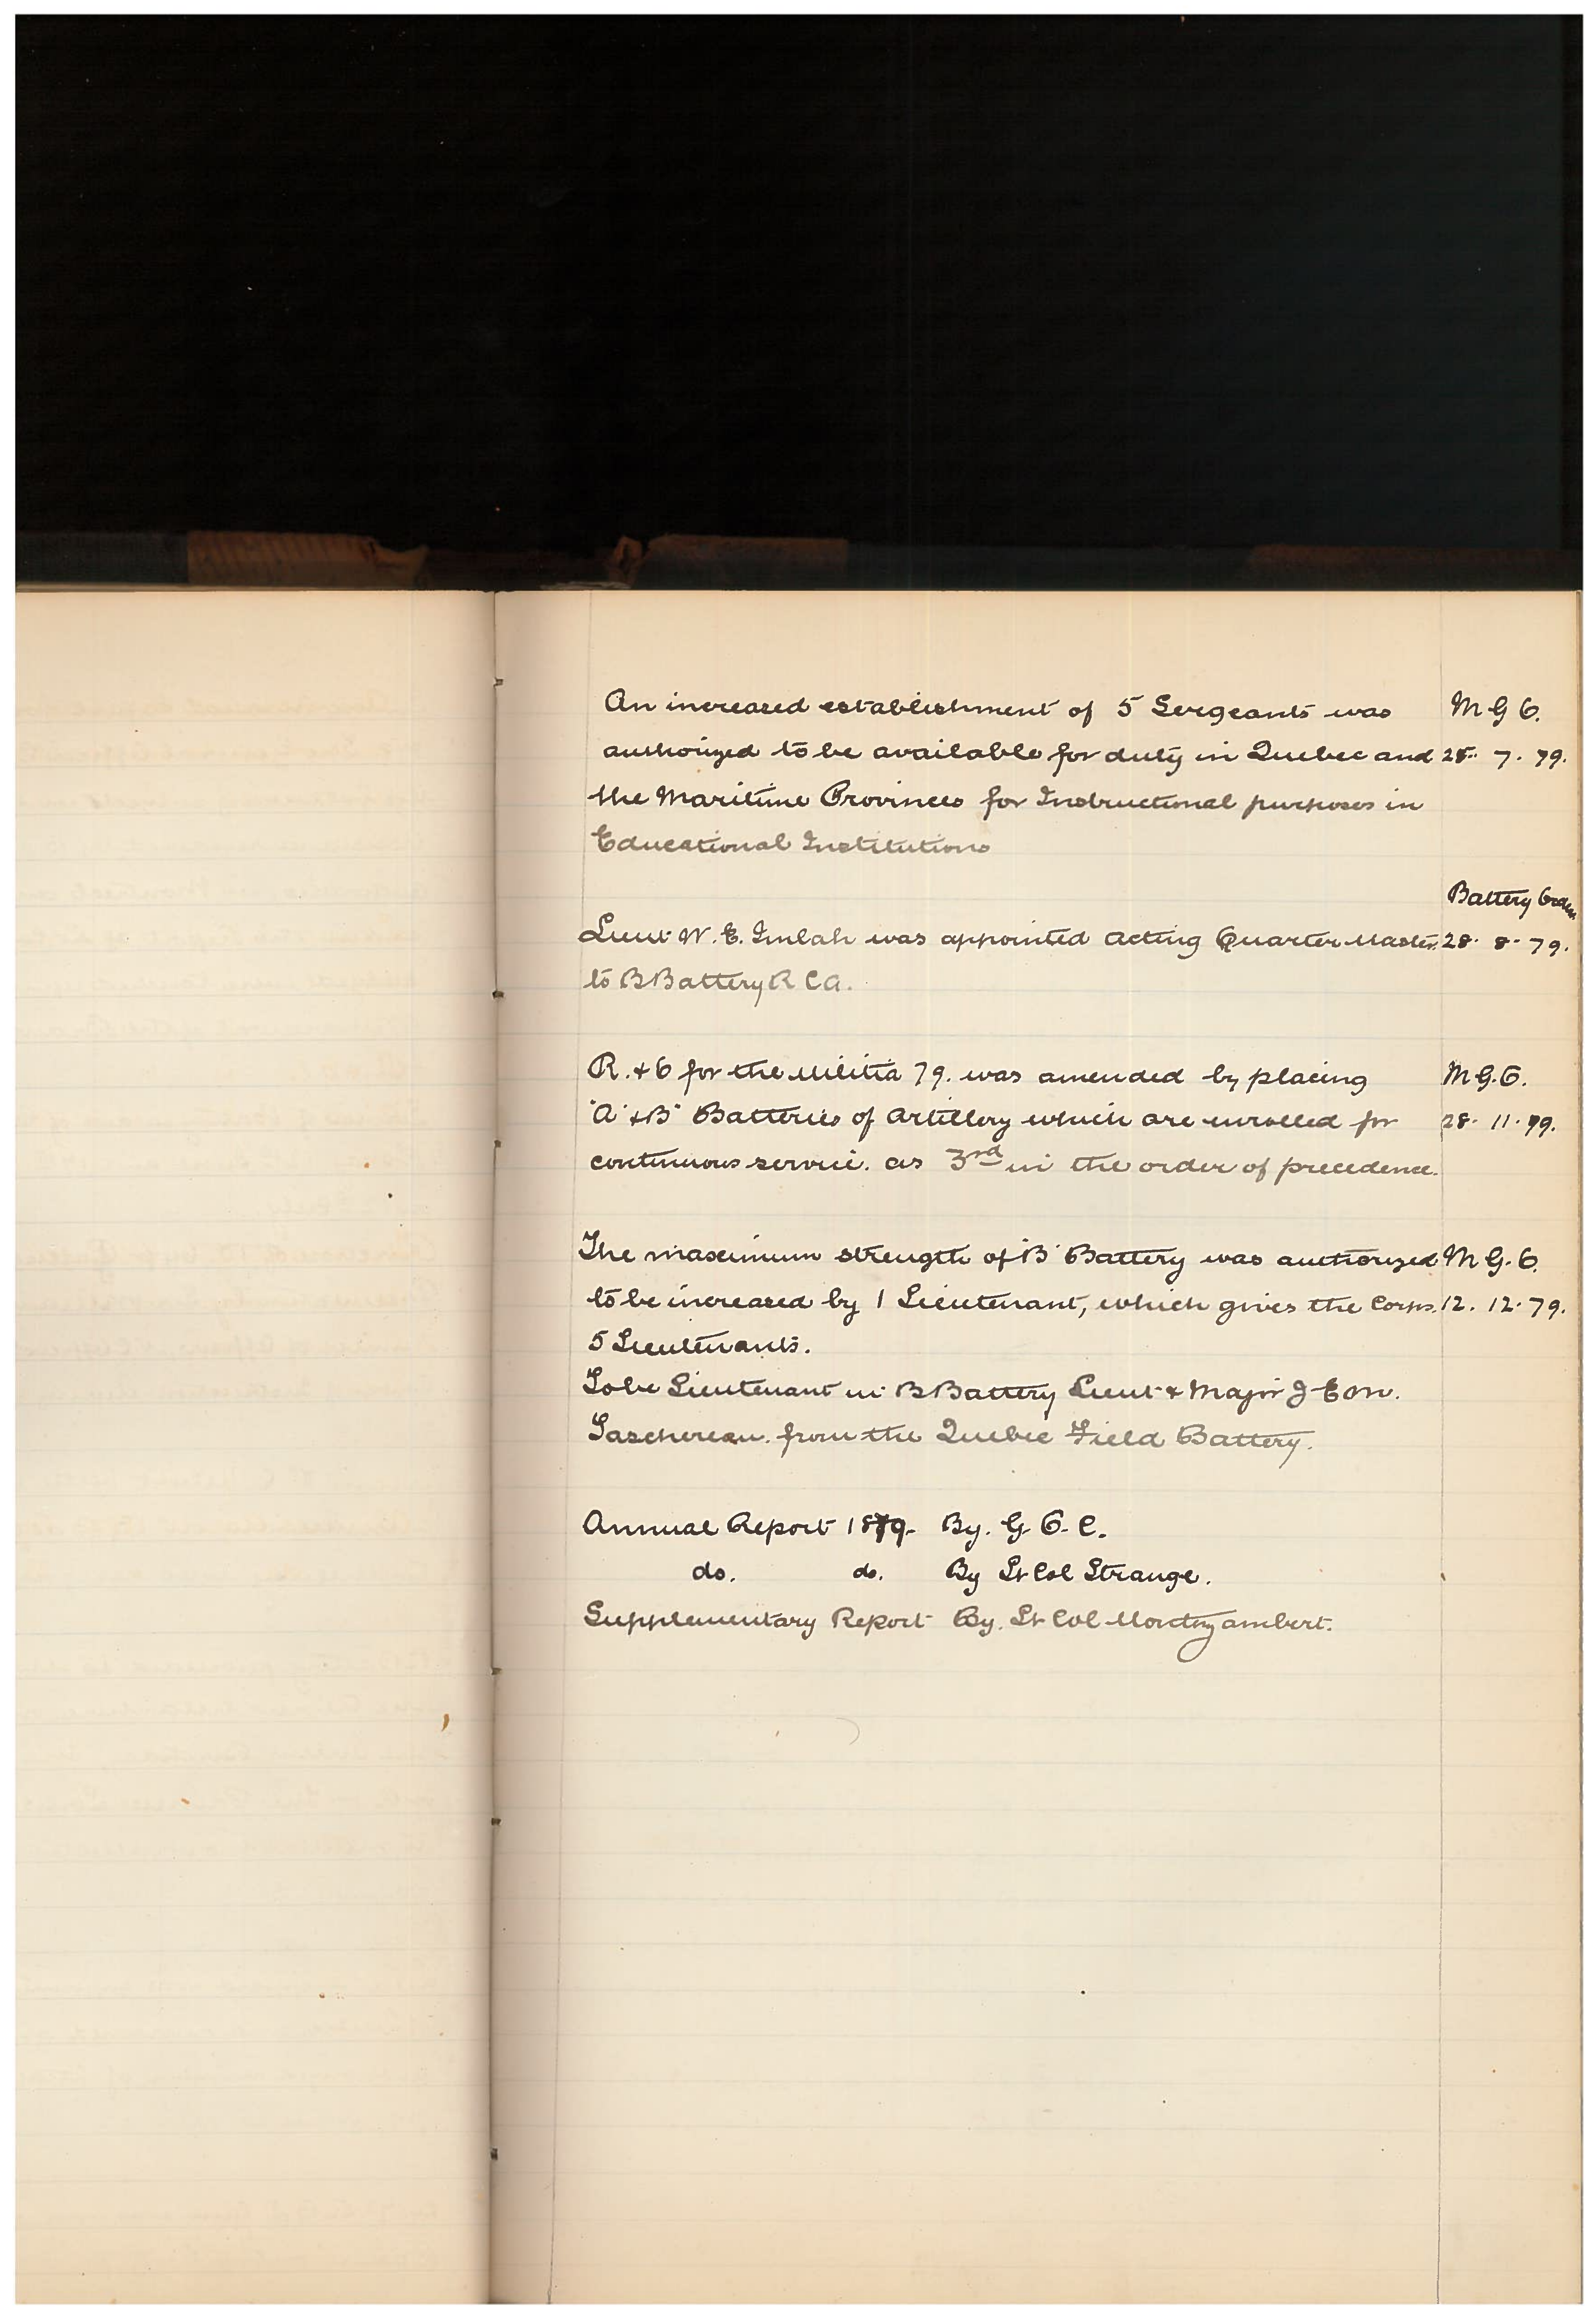 An increased establishment of 5 Sergeants was M G O.
authorized to be available for duty in Quebec and 28. 7. 79.
the Maritime Provinces for Instructional purposes in
Educational Institutions
Battery Orders
Lieut W. E. Imlah was appointed Acting Quarter Master 28. 8. 79.
to B Battery R C A.
R. & O for the Militia 79. was amended by placing M G. O.
"A" & "B" Batteries of Artillery which are enrolled for 28. 11. 79.
continuous service. as 3rd in the order of precedence.
The maximum strength of "B" Battery was authorized M G. O.
to be increased by 1 Lieutenant, which gives the Corps. 12. 12. 79.
5 Lieutenants.
To be Lieutenant in B Battery Lieut & Major J-E
Taschereau. from the Quebec Field Battery.
Annual Report 1879- By. G O. C.
do. do. By Lt Col Strange.
Supplementary Report By. Lt Col Montizambert.